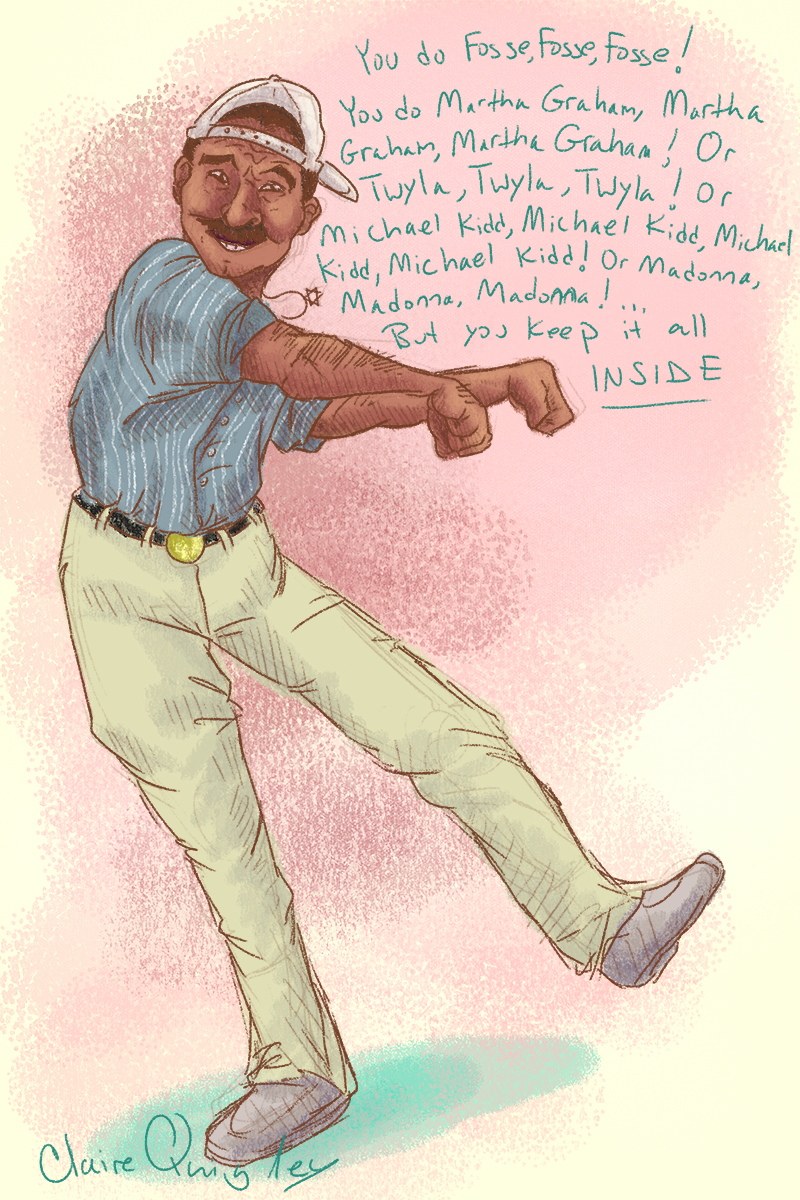 You do Fosse, Fosse, Fosse!
You do Martha Graham, Martha
Graham, Martha Graham! Or
Twyla, Twyla, Twyla! Or
Michael Kidd, Michael Kidd, Michael
Kidd, Michael Kidd! Or Madonna,
Madonna, Madonna!...
But you keep it all
INSIDE
Claire Quigley